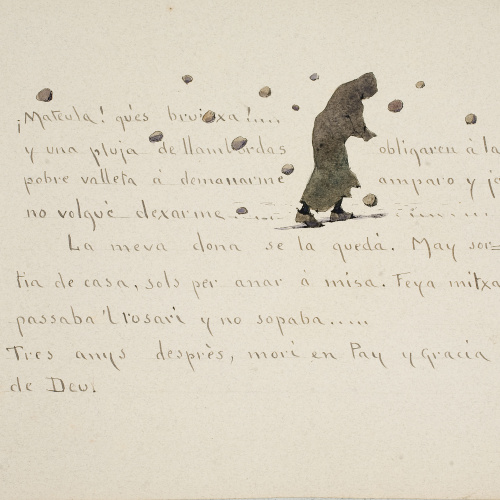 ¡Mateula! qu'es bruixa!....
y una pluja de llambordas obligaren á la
pobre velleta á demanarme amparo y jo
no volgué dexarme.......
La meva dona se la quedá. May sor=
tia de casa, sols per anar á misa. Feya mitxa
passaba 'l rosari y no sopaba.....
Tres anys desprès, morí en Pau y Gracia
de Deu.